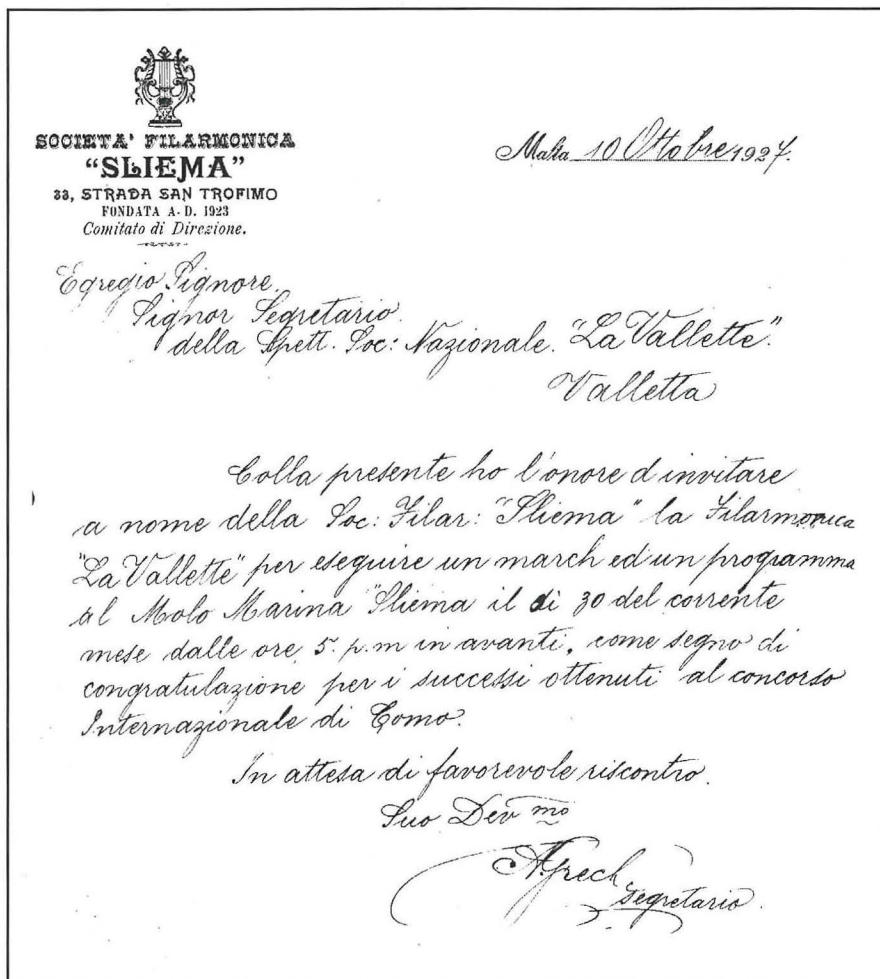 SOCIETA' FILARMONICA
"SLIEMA"
33, STRADA SAN TROFIMO
FONDATA A. D. 1923
Comitato di Direzione.
Malta 10 Ottobre 1927.
Egregio Signore,
Signor Segretario
della Spett. Soc: Nazionale. "La Vallette".
Valletta
Colla presente ho l'onore d'invitare
a nome della Soc: Filar: "Sliema" la Filarmonica
"La Vallette" per eseguire un march ed un programma
al Molo Marina "Sliema il di 30 del corrente
mese dalle ore 5. p.m in avanti, come segno di
congratulazione per i successi ottenuti al concorso
Internazionale di Como.
In attesa di favorevole riscontro.
Suo Dev mo
A. Grech
Segretario.